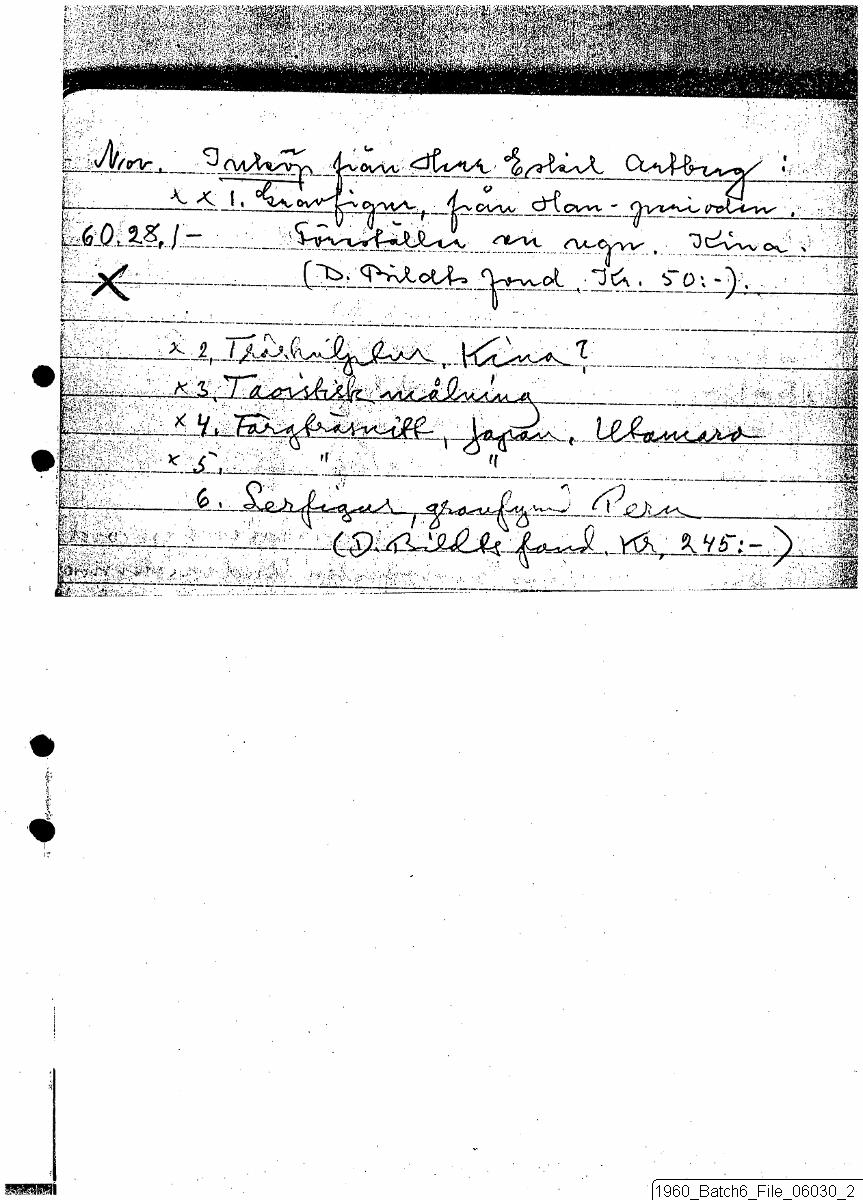 Nov. Inköp från Herr Eskil Artberg :
x x 1. Gravfigur, från Han-perioden.
60.28.1- Föreställer en ugn. Kina.
X (D. Bildts fond. Kr. 50:-).
x 2. Träskulptur, Kina?
x 3. Taoistisk målning
x 4. Färgträsnitt, Japan, Utamaro
x 5. " "
6. Lerfigur, gravfynd Peru
(D. Bildts fond. Kr. 245:-)
1960_Batch6_File_06030_2